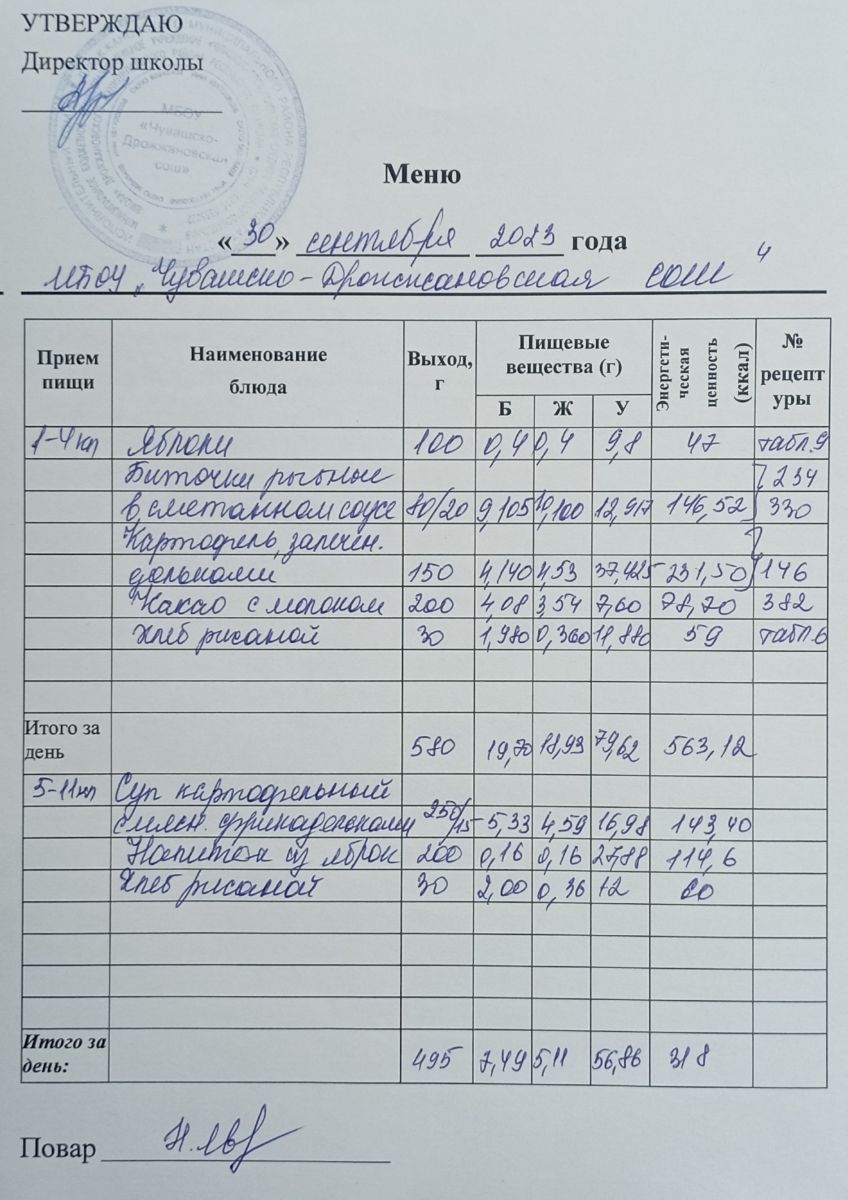 УТВЕРЖДАЮ
Директор школы
МБОУ
«Чувашско-
Дрожжановская
сош»
Меню
«30» сентября 2023 года
МБОУ „Чувашско-Дрожжановская сош"
Прием пищи Наименование блюда Выход, г Пищевые вещества (г) Энергети-ческая ценность (ккал) № рецептуры
Б Ж У
1-4 кл Яблоки 100 0,4 0,4 9,8 47 табл.9
Биточки рыбные 234
в сметанном соусе 80/20 9,105 10,100 12,917 146,52 330
Картофель, запечен.
дольками 150 4,140 4,53 37,425 231,50 146
Какао с молоком 200 4,08 3,54 7,60 78,70 382
Хлеб ржаной 30 1,980 0,360 11,880 59 табл.6
Итого за день 580 19,70 18,93 79,62 563,12
5-11 кл Суп картофельный
с мясн. фрикадельками 250/15 5,33 4,59 16,98 143,40
Напиток из яблок 200 0,16 0,16 27,88 114,6
Хлеб ржаной 30 2,00 0,36 12 60
Итого за день: 495 7,49 5,11 56,86 318
Повар